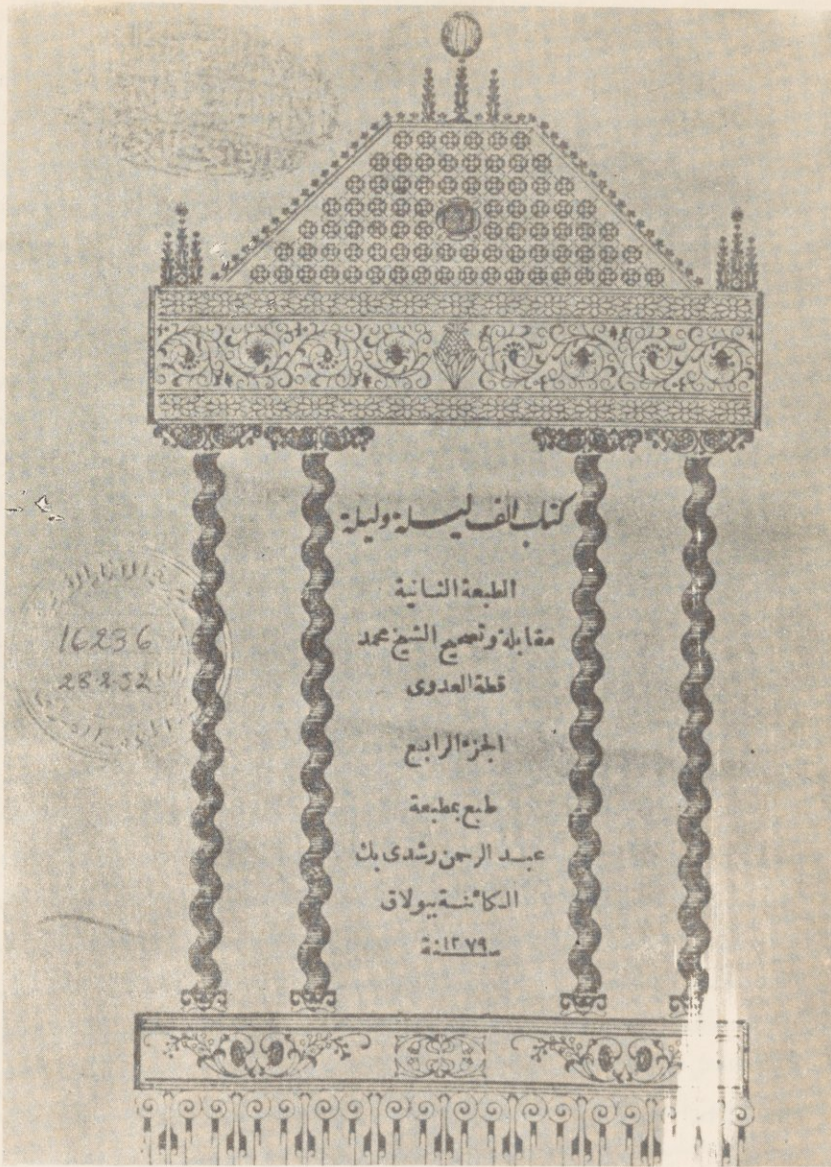 كتاب الف ليلة وليلة
الطبعة الثانية
مقابلة وتصحيح الشيخ محمد
قطة العدوى
الجزء الرابع
طبع بمطبعة
عبد الرحمن رشدى بك
الكائنة ببولاق
سنة ١٢٧٩
16236
28.2.52